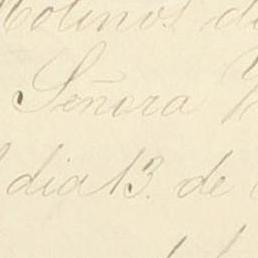 Molinos d
Señora
dia 13. de